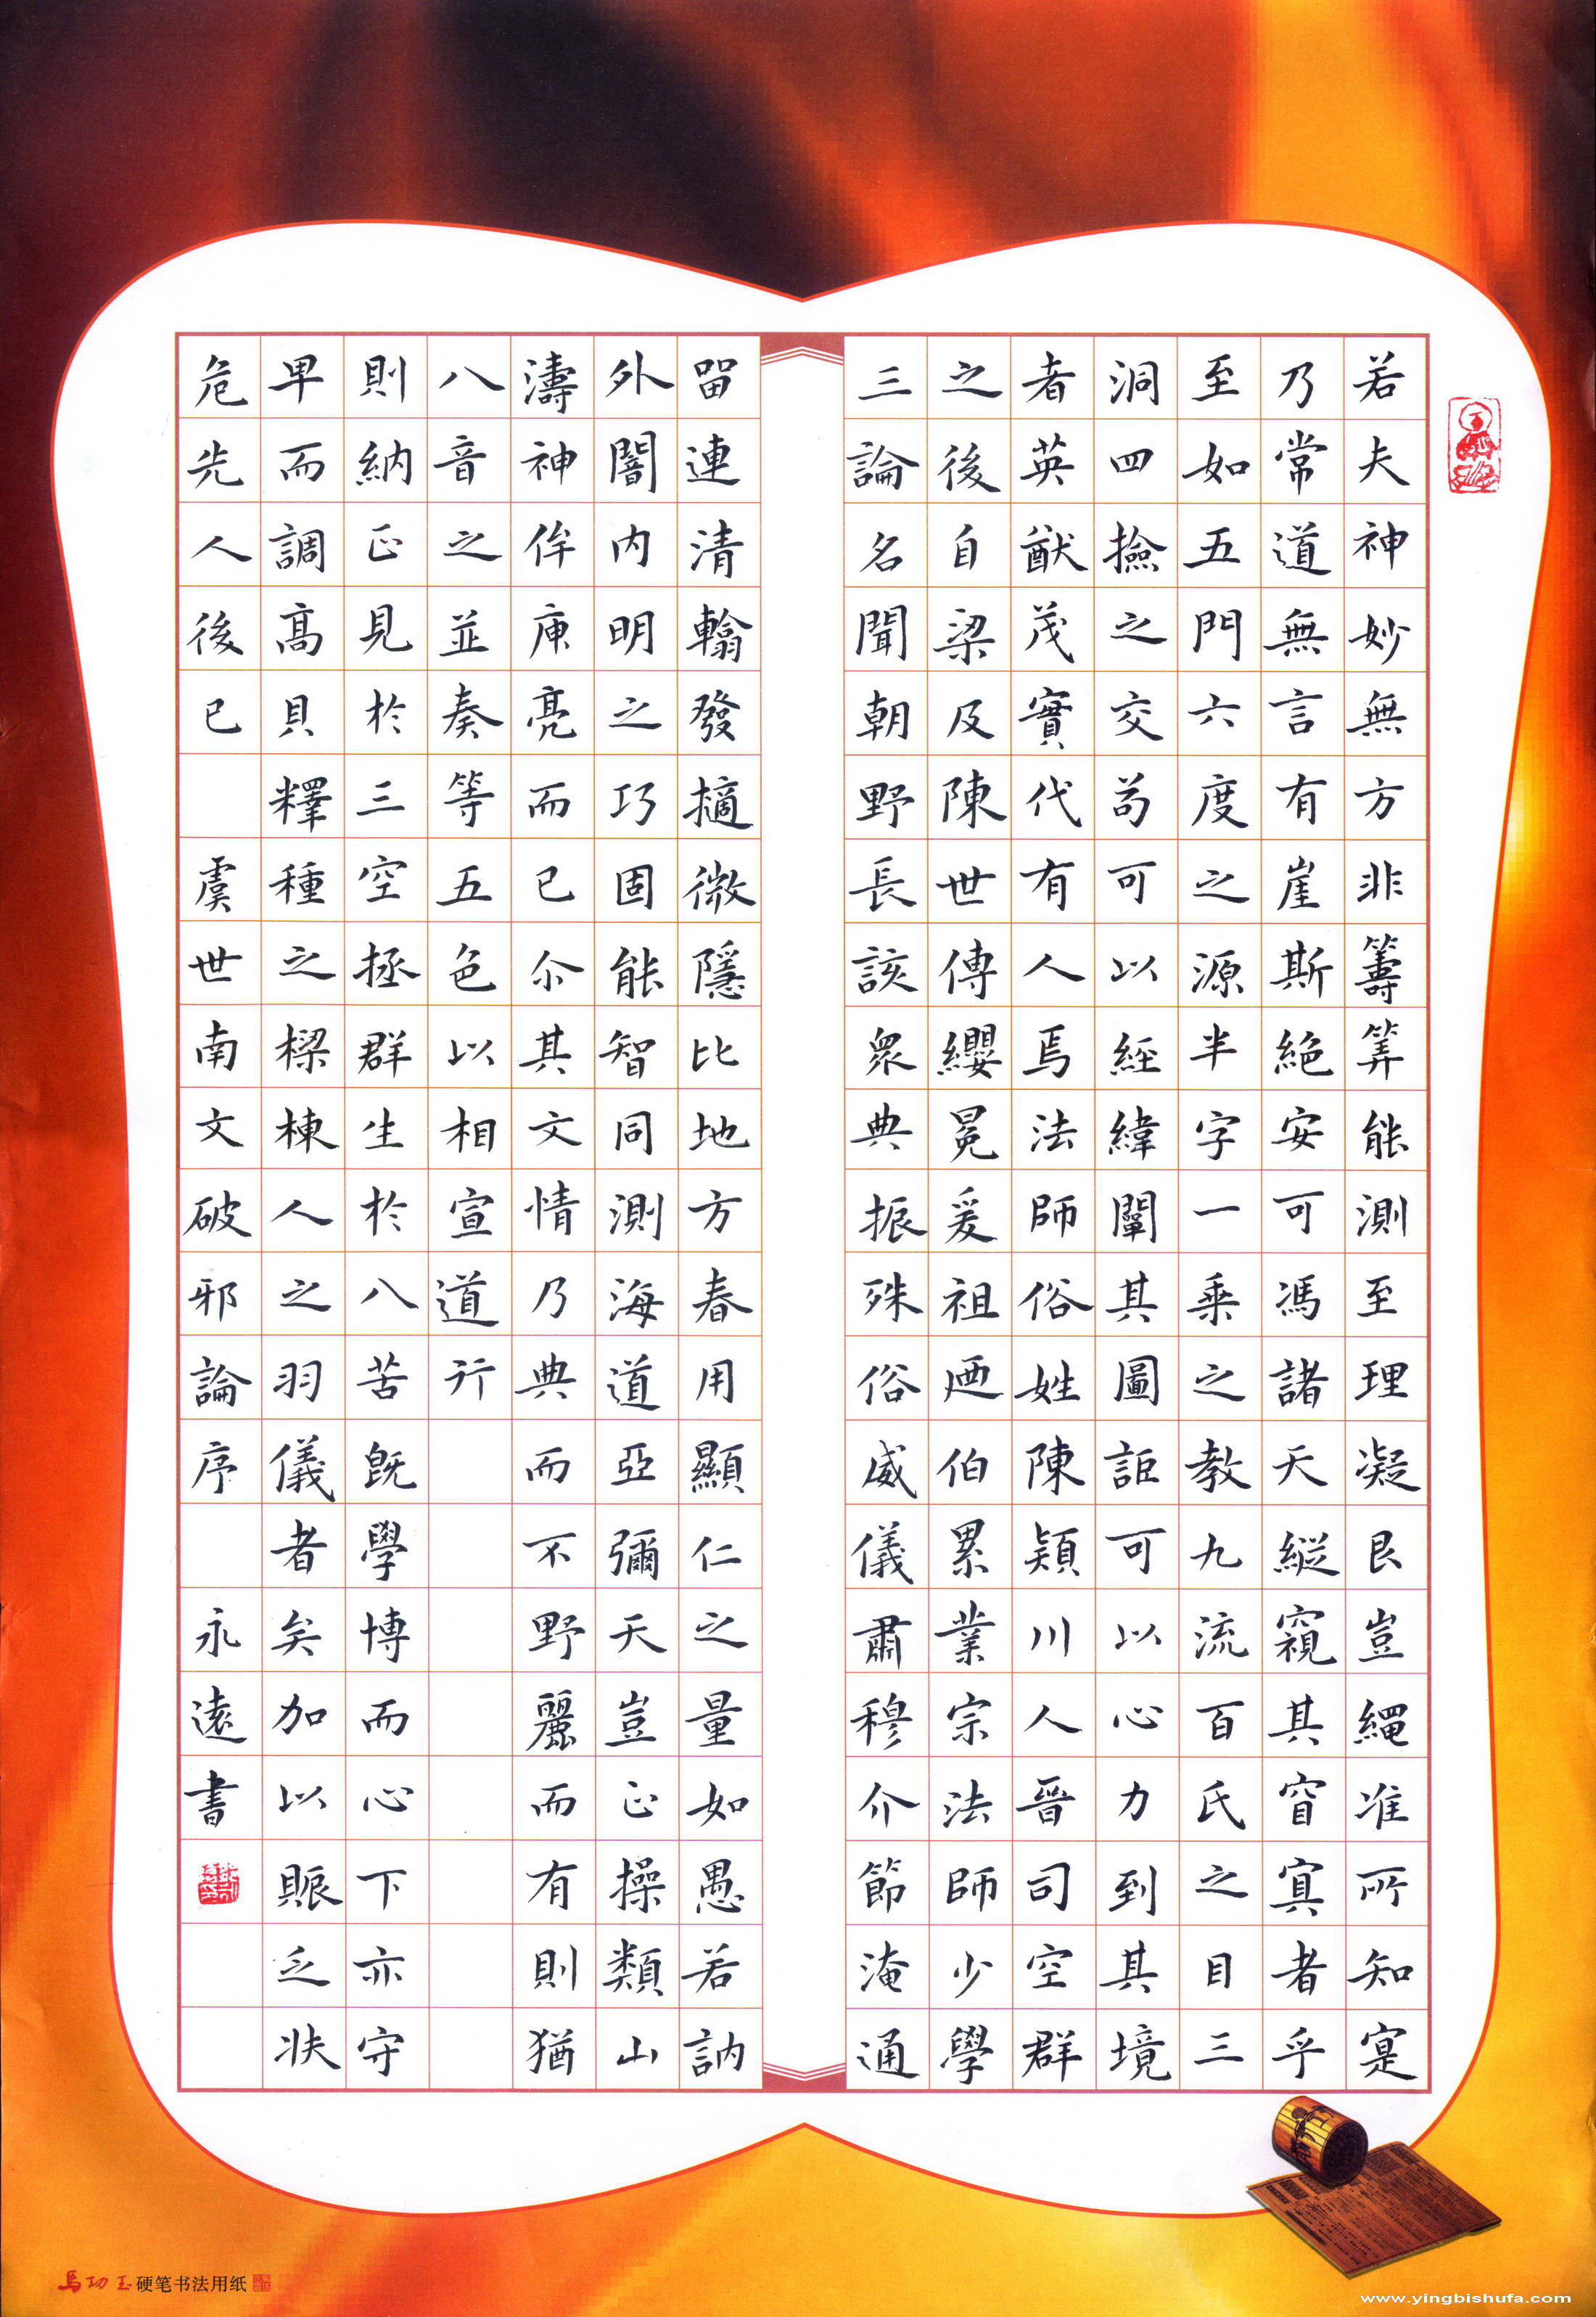 若夫神妙無方非籌筭能測至理凝邈豈繩准所知寔
乃常道無言有崖斯絕安可馮諸天縱窺其窅寘者乎
至如五門六度之源半字一乘之教九流百氏之目三
洞四撿之文苟可以經緯闡其圖詎可以心力到其境
者英猷茂實代有人焉法師俗姓陳潁川人晉司空群
之後自梁及陳世傳纓冕爰祖迺伯累業宗法師少學
三論名聞朝野長該衆典振殊俗威儀肅穆介節淹通
留連清翰發擿微隱比地方春用顯仁之量如愚若訥
外闇内明之巧固能智同測海道亞彌天豈止操類山
濤神侔庾亮而已尒其文情乃典而不野麗而有則猶
八音之並奏等五色以相宣道行
則納正見於三空拯群生於八苦既學博而心下亦守
卑而調高貝釋種之樑棟人之羽儀者矣加以賑乏扶
危先人後已 虞世南文破邪論序 永遠書
馬功玉硬笔书法用纸
www.yingbishufa.com